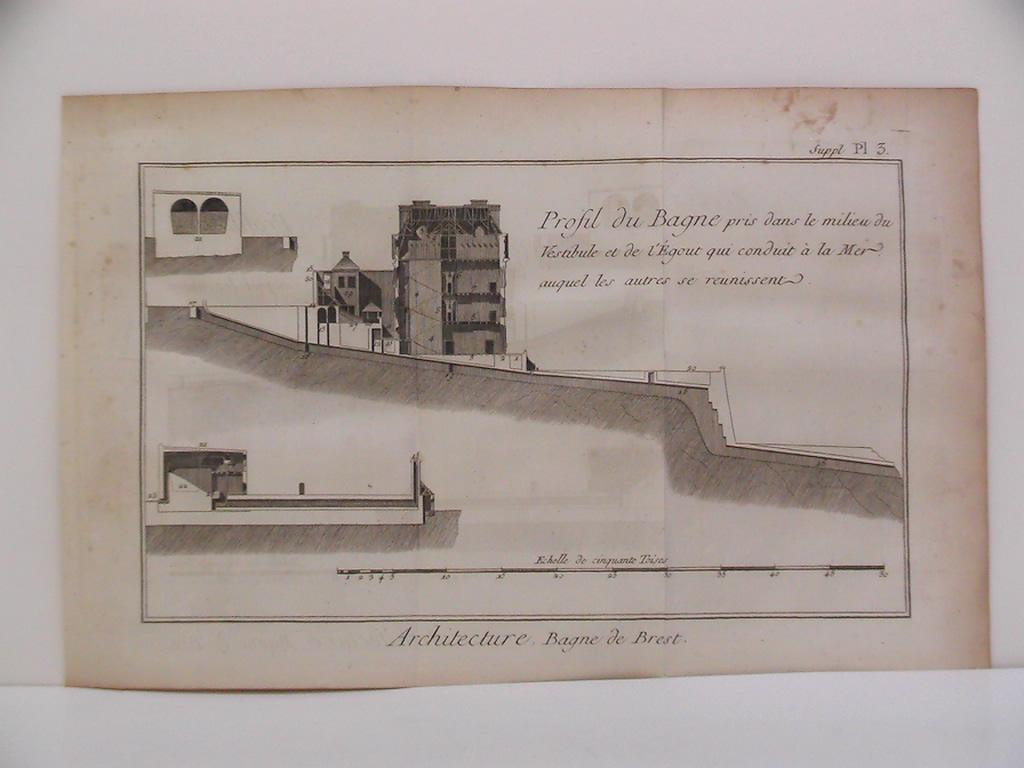 Suppl Pl 3.
Profil du Bagne pris dans le milieu du
Vestibule et de l'Égout qui conduit à la Mer
auquel les autres se reunissent.
Echelle de cinquante Toises
1 2 3 4 5 10 15 20 25 30 35 40 45 50
Architecture, Bagne de Brest.